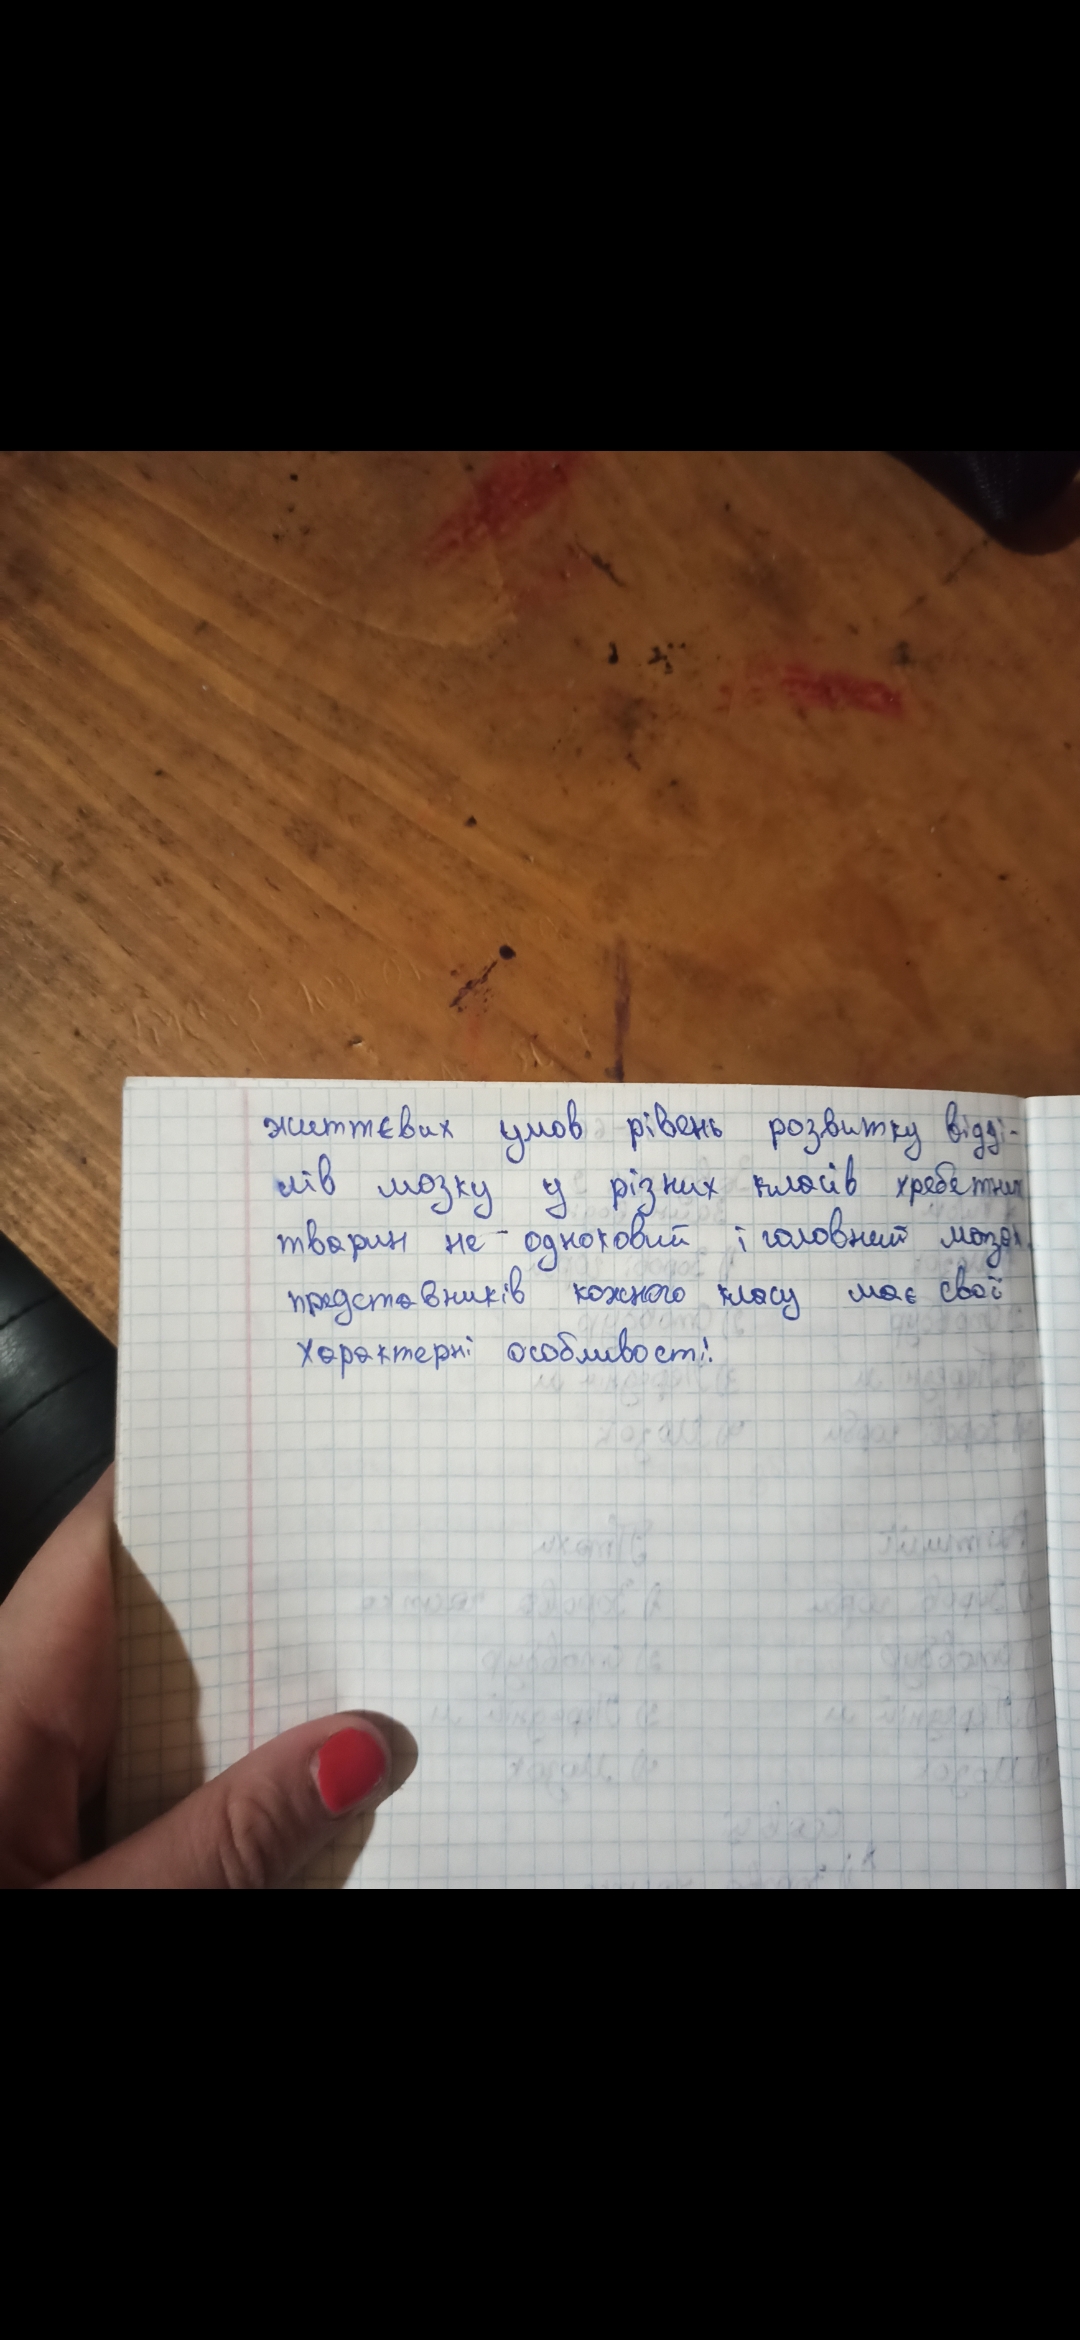 життєвих умов рівень розвитку відді-
лів мозку у різних класів хребетних
тварин не одноковий і головний мозок
представників кожного класу має свої
характерні особливості.